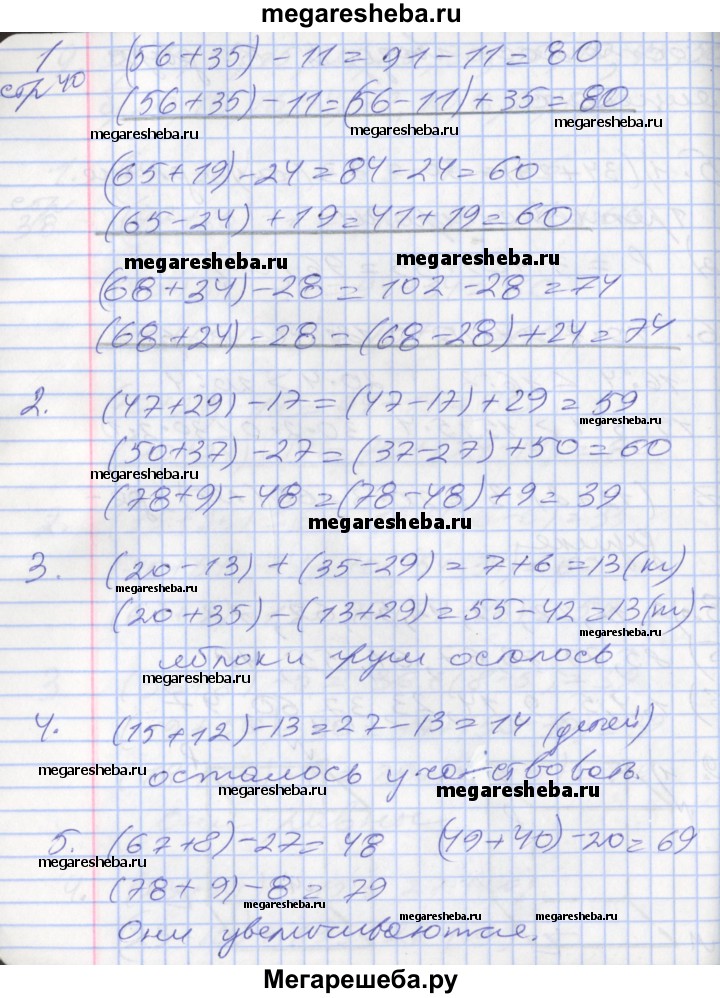 megaresheba.ru
1 (56+35)-11=91-11=80
стр 40
(56+35)-11=(56-11)+35=80
megaresheba.ru
megaresheba.ru
(65+19)-24=84-24=60
(65-24)+19=41+19=60
megaresheba.ru
megaresheba.ru
(68+34)-28=102-28=74
(68+24)-28=(68-28)+24=74
2. (47+29)-17=(47-17)+29=59
megaresheba.ru
(50+37)-27=(37-27)+50=60
megaresheba.ru
(78+9)-48=(78-48)+9=39
megaresheba.ru
3. (20-13)+(35-29)=7+6=13(кг)
megaresheba.ru
(20+35)-(13+29)=55-42=13(кг)-
megaresheba.ru
яблок и груш осталось
megaresheba.ru
4. (15+12)-13=27-13=14 (детей)
megaresheba.ru
осталось участвовать.
megaresheba.ru
5. (67+8)-27=48 (49+40)-20=69
megaresheba.ru
megaresheba.ru
(78+9)-8=79
megaresheba.ru
megaresheba.ru
Они увеличиваются.
Мегарешеба.ру